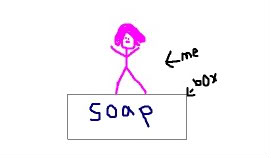 me
box
soap